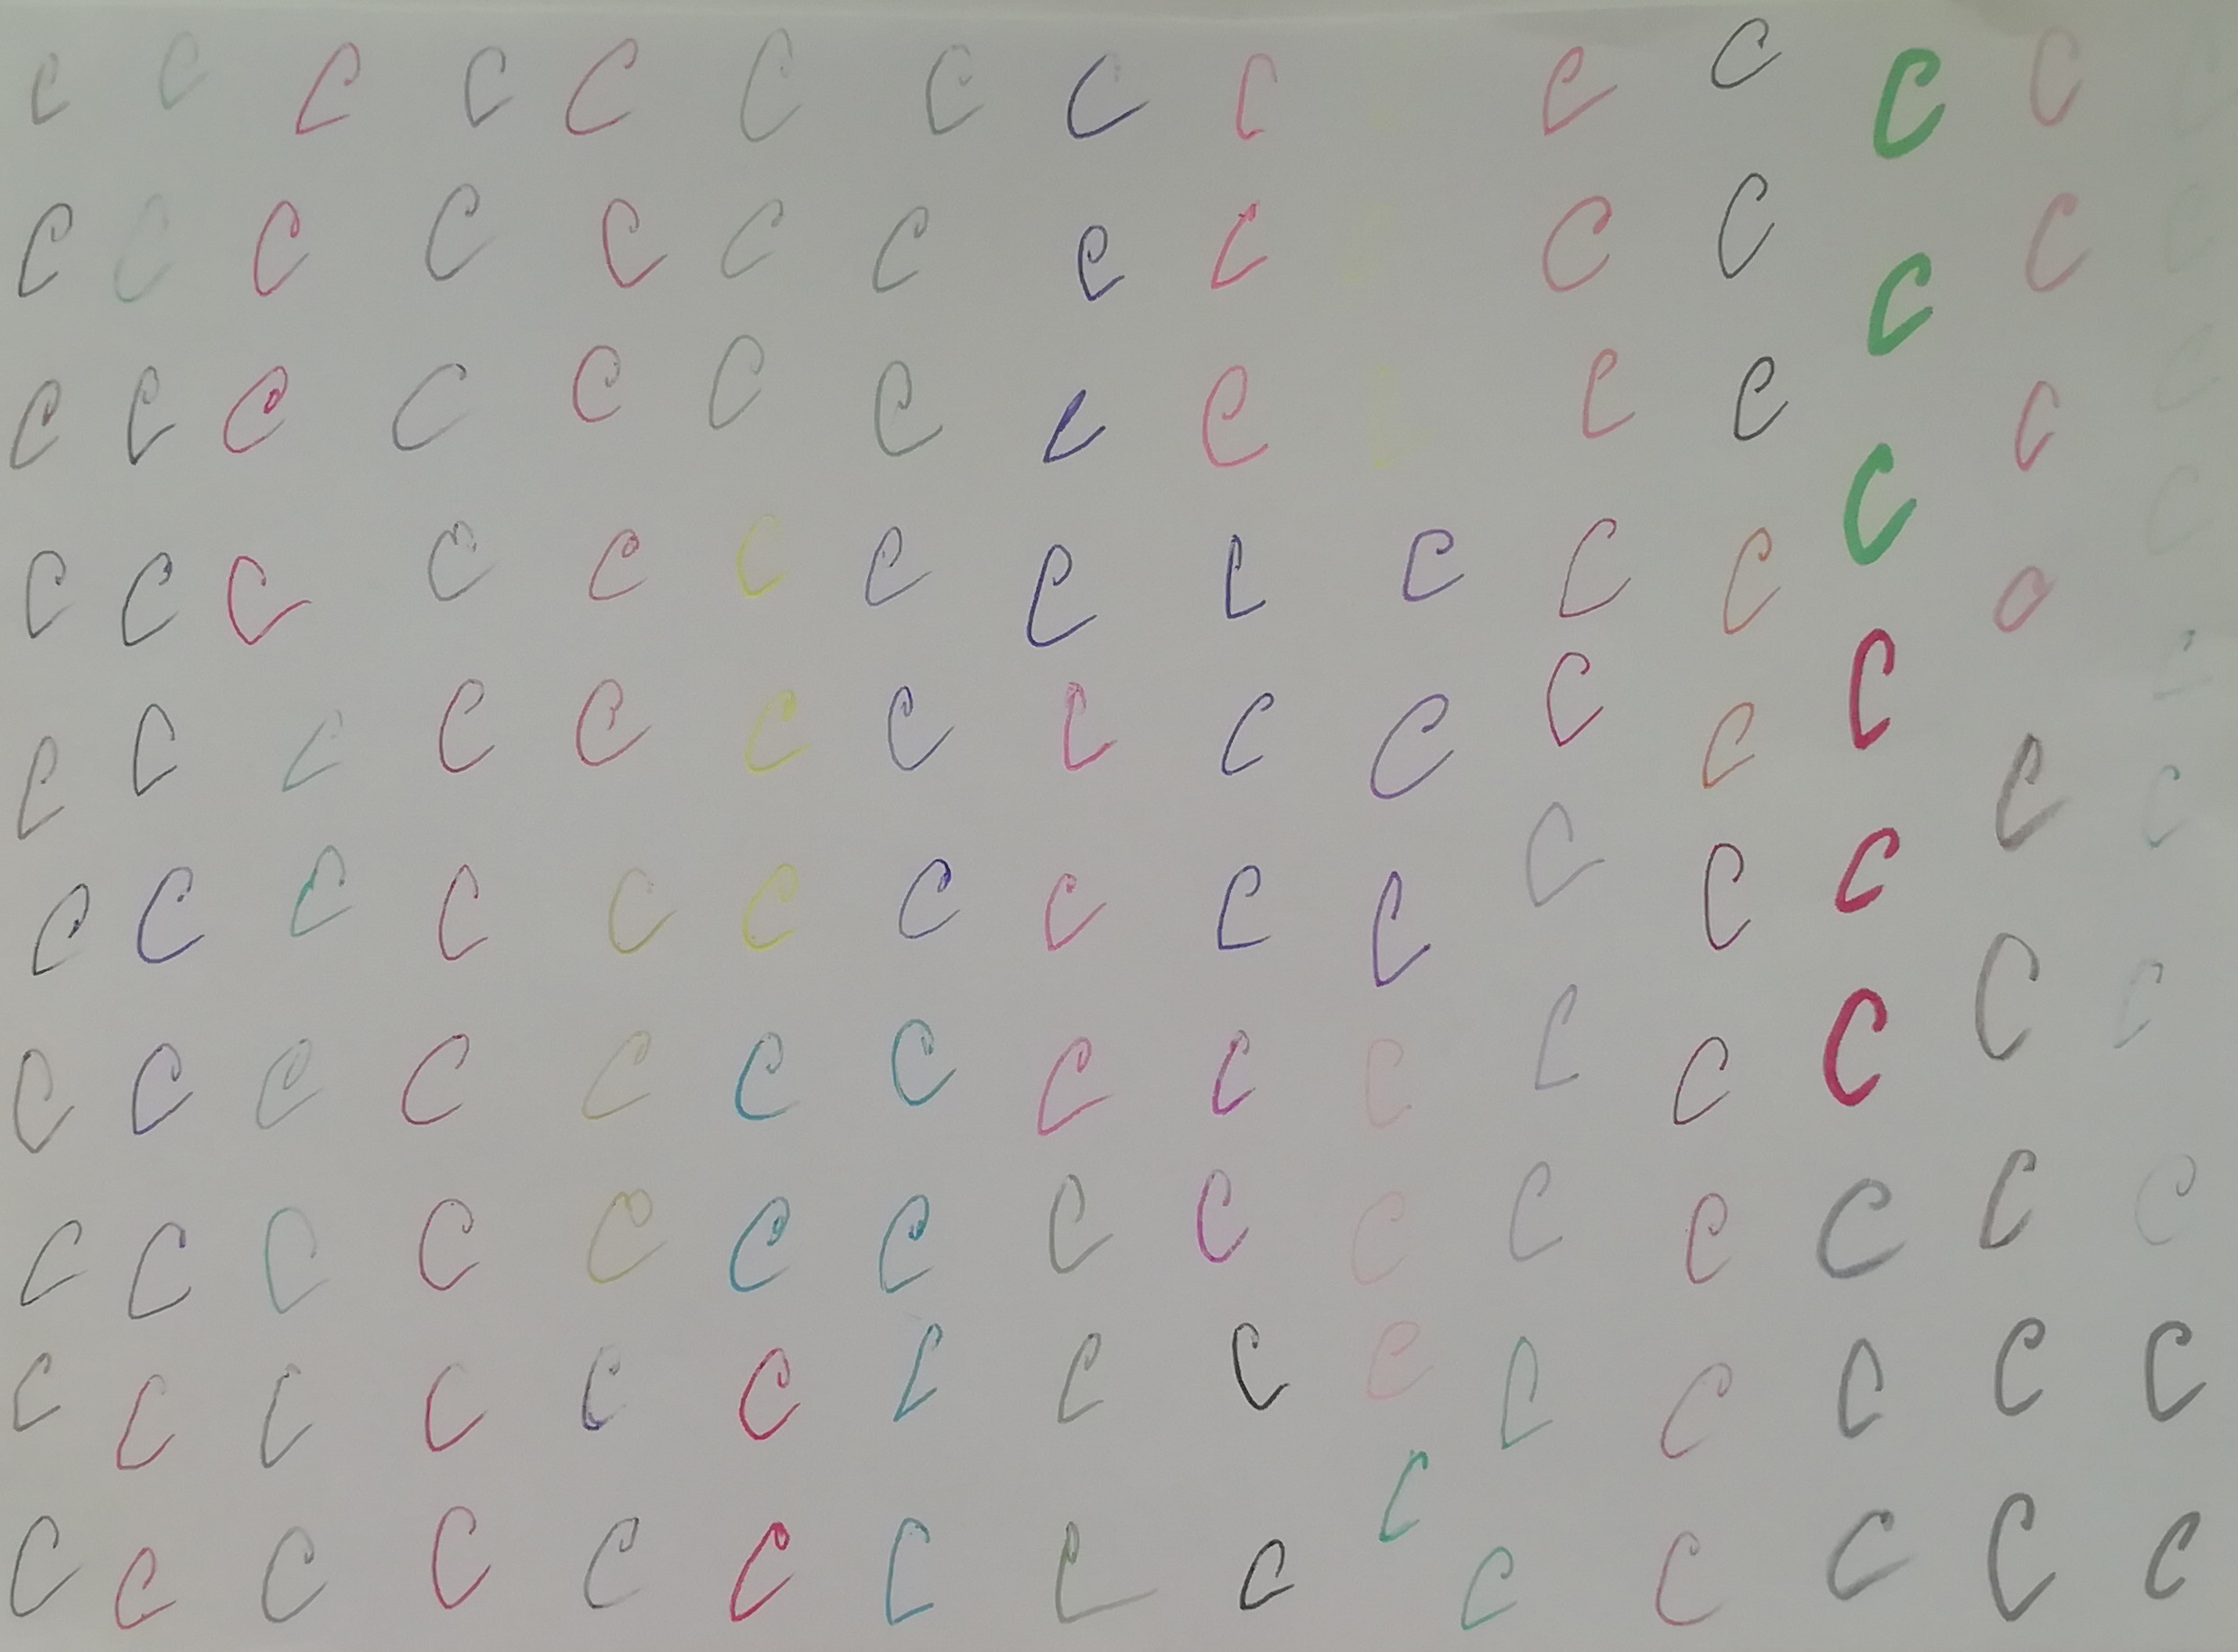 C C C C C C C C C C C C C C
C C C C C C C C C C C C C C
C C C C C C C C C C C C C C
C C C C C C C C C C C C C C C
C C C C C C C C C C C C C C C
C C C C C C C C C C C C C C C
C C C C C C C C C C C C C C C
C C C C C C C C C C C C C C C
C C C C C C C C C C C C C C C
C C C C C C C C C C C C C C C